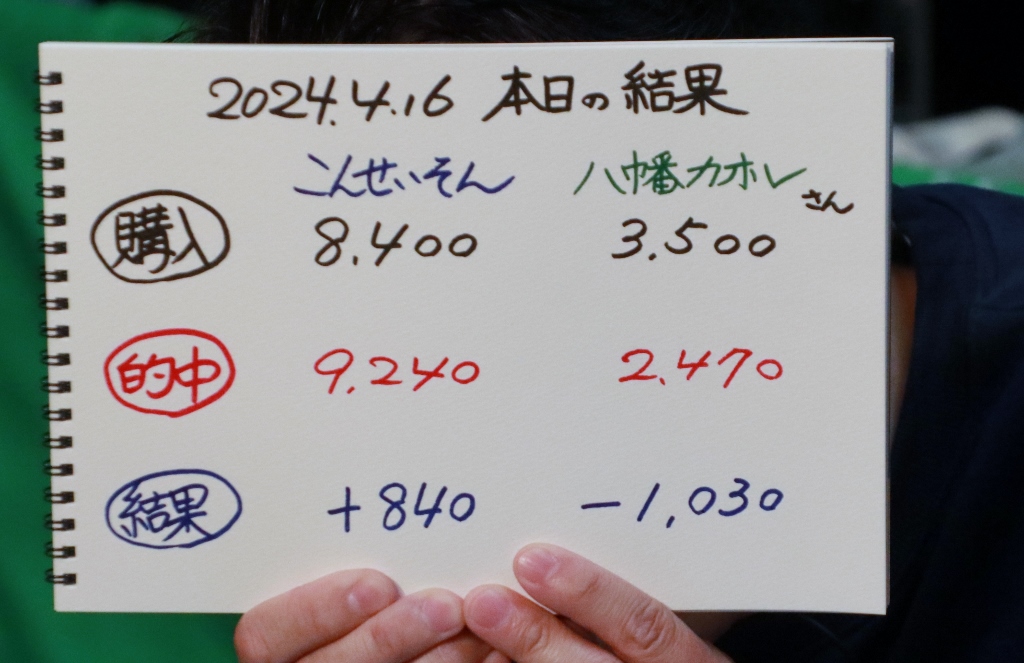 2024.4.16 本日の結果
こんせいそん 八幡カオレ さん
購入 8.400 3.500
的中 9.240 2.470
結果 +840 -1,030